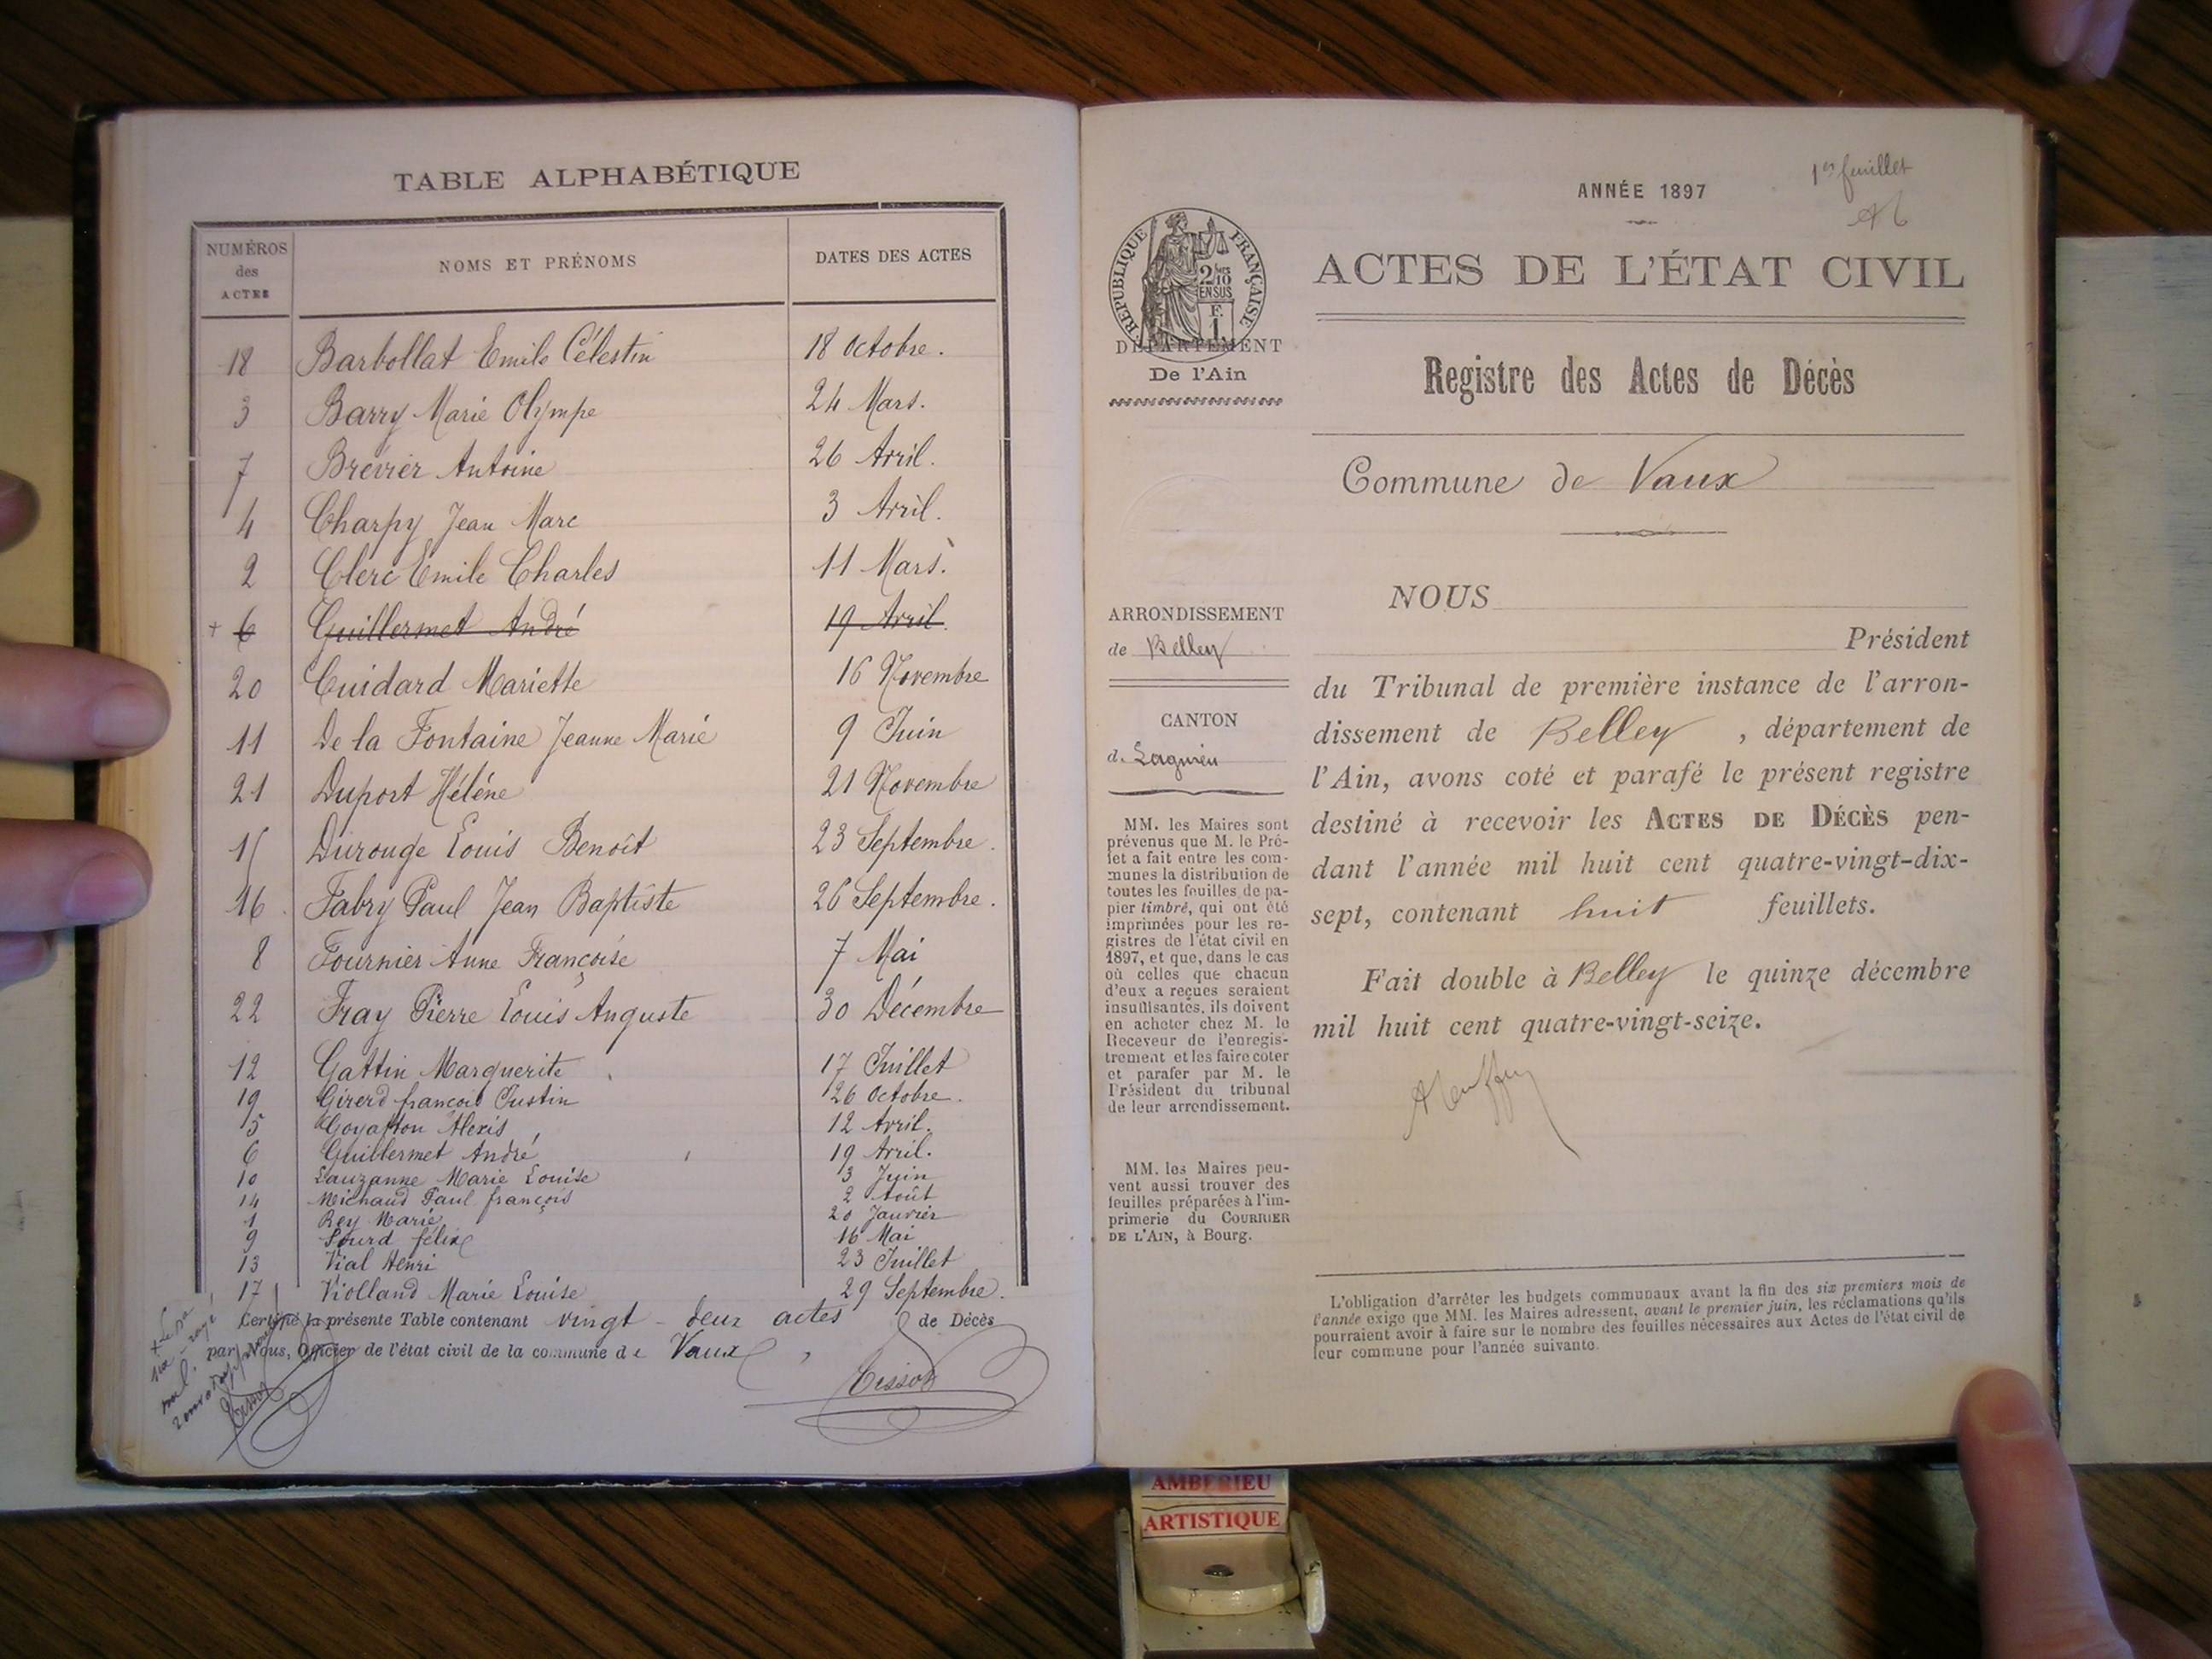 TABLE ALPHABÉTIQUE
NUMÉROS
des
ACTES
NOMS ET PRÉNOMS
DATES DES ACTES
18 Barbollat Emile Célestin 18 Octobre.
3 Barry Marie Olympe 24 Mars.
7 Brévier Antoine 26 Avril.
4 Charpy Jean Marc 3 Avril.
2 Clerc Emile Charles 11 Mars.
+ 6 Guillermet André 19 Avril.
20 Cuidard Mariette 16 Novembre
11 De la Fontaine Jeanne Marie 9 Juin
21 Duport Hélène 21 Novembre
15 Durouge Louis Benoît 23 Septembre.
16 Fabry Paul Jean Baptiste 26 Septembre.
8 Fournier Anne Françoise 7 Mai
22 Fray Pierre Louis Auguste 30 Décembre
12 Gattin Marguerite 17 Juillet
19 Girerd françois Justin 26 Octobre.
5 Goyatton Alexis 12 Avril.
6 Guillermet André 19 Avril.
10 Lauzanne Marie Louise 3 Juin
14 Michaud Paul françois 2 Août
1 Rey Marie 20 Janvier
9 Sourd félix 16 Mai
13 Vial Henri 23 Juillet
17 Violland Marie Louise 29 Septembre.
Certifié la présente Table contenant vingt-deux actes de Décès
par Nous, Officier de l'état civil de la commune de Vaux,
Tissot
1er feuillet
ANNÉE 1897
RÉPUBLIQUE FRANÇAISE
2/10
EN SUS
F.
1
ACTES DE L'ÉTAT CIVIL
DÉPARTEMENT
De l'Ain
Registre des Actes de Décès
Commune de Vaux
ARRONDISSEMENT
de Belley
CANTON
de Lagnieu
MM. les Maires sont
prévenus que M. le Pré-
fet a fait entre les com-
munes la distribution de
toutes les feuilles de pa-
pier timbré, qui ont été
imprimées pour les re-
gistres de l'état civil en
1897, et que, dans le cas
où celles que chacun
d'eux a reçues seraient
insuffisantes, ils doivent
en acheter chez M. le
Receveur de l'enregis-
trement et les faire coter
et parafer par M. le
Président du tribunal
de leur arrondissement.
MM. les Maires peu-
vent aussi trouver des
feuilles préparées à l'im-
primerie du COURRIER
DE L'AIN, à Bourg.
NOUS
Président
du Tribunal de première instance de l'arron-
dissement de Belley, département de
l'Ain, avons coté et parafé le présent registre
destiné à recevoir les ACTES DE DÉCÈS pen-
dant l'année mil huit cent quatre-vingt-dix-
sept, contenant huit feuillets.
Fait double à Belley le quinze décembre
mil huit cent quatre-vingt-seize.
L'obligation d'arrêter les budgets communaux avant la fin des six premiers mois de
l'année exige que MM. les Maires adressent, avant le premier juin, les réclamations qu'ils
pourraient avoir à faire sur le nombre des feuilles nécessaires aux Actes de l'état civil de
leur commune pour l'année suivante.
AMBERIEU
ARTISTIQUE